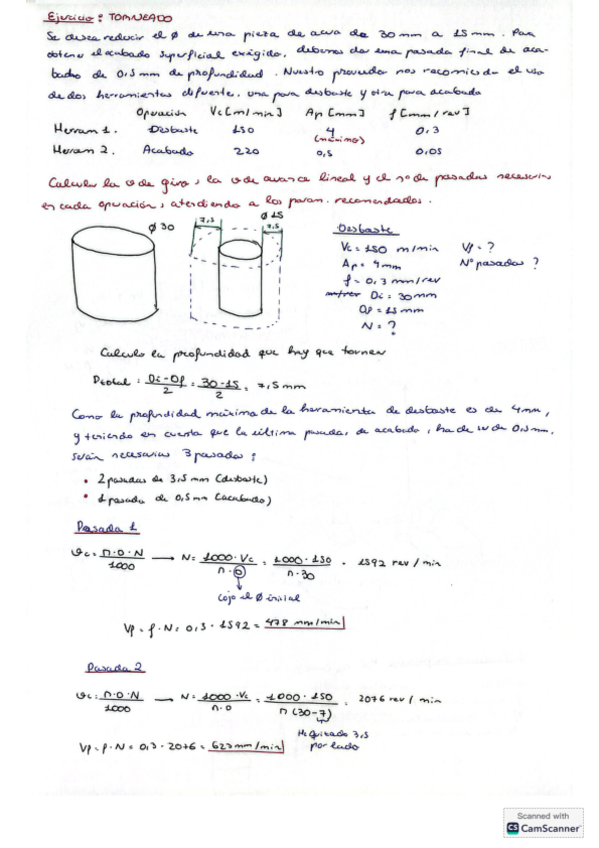 Ejercicio: TORNEADO
Se desea reducir el Ø de una pieza de acero de 30 mm a 15 mm. Para
obtener el acabado superficial exigido, debemos dar una pasada final de aca-
bado de 0,5 mm de profundidad. Nuestro proveedor nos recomienda el uso
de dos herramientas diferentes, una para desbaste y otra para acabado
Operación Vc [m/min] Ap [mm] f [mm/rev]
Herram 1. Desbaste 150 4 (máximo) 0,3
Herram 2. Acabado 220 0,5 0,05
Calcular la v de giro, la v de avance lineal y el nº de pasadas necesarias
en cada operación, atendiendo a los param. recomendados.
Ø 30
7,5
Ø 15
7,5
Desbaste
Vc = 150 m/min Vf = ?
Ap = 4mm Nº pasadas ?
f = 0,3 mm/rev
Di = 30mm
Df = 15 mm
N = ?
Calculo la profundidad que hay que tornear
Ptotal = Di-Df/2 = 30-15/2 = 7,5 mm
Como la profundidad máxima de la herramienta de desbaste es de 4mm,
y teniendo en cuenta que la última pasada, de acabado, ha de ser de 0,5mm,
serán necesarias 3 pasadas:
• 2 pasadas de 3,5 mm (desbaste)
• 1 pasada de 0,5 mm (acabado)
Pasada 1
Vc = π·D·N/1000 → N = 1000·Vc/π·D = 1000·150/π·30 = 1592 rev/min
Cojo el Ø inicial
Vf = f·N = 0,3·1592 = 478 mm/min
Pasada 2
Vc = π·D·N/1000 → N = 1000·Vc/π·D = 1000·150/π(30-7) = 2076 rev/min
He quitado 3,5
por lado
Vf = f·N = 0,3·2076 = 623 mm/min
Scanned with
CS CamScanner